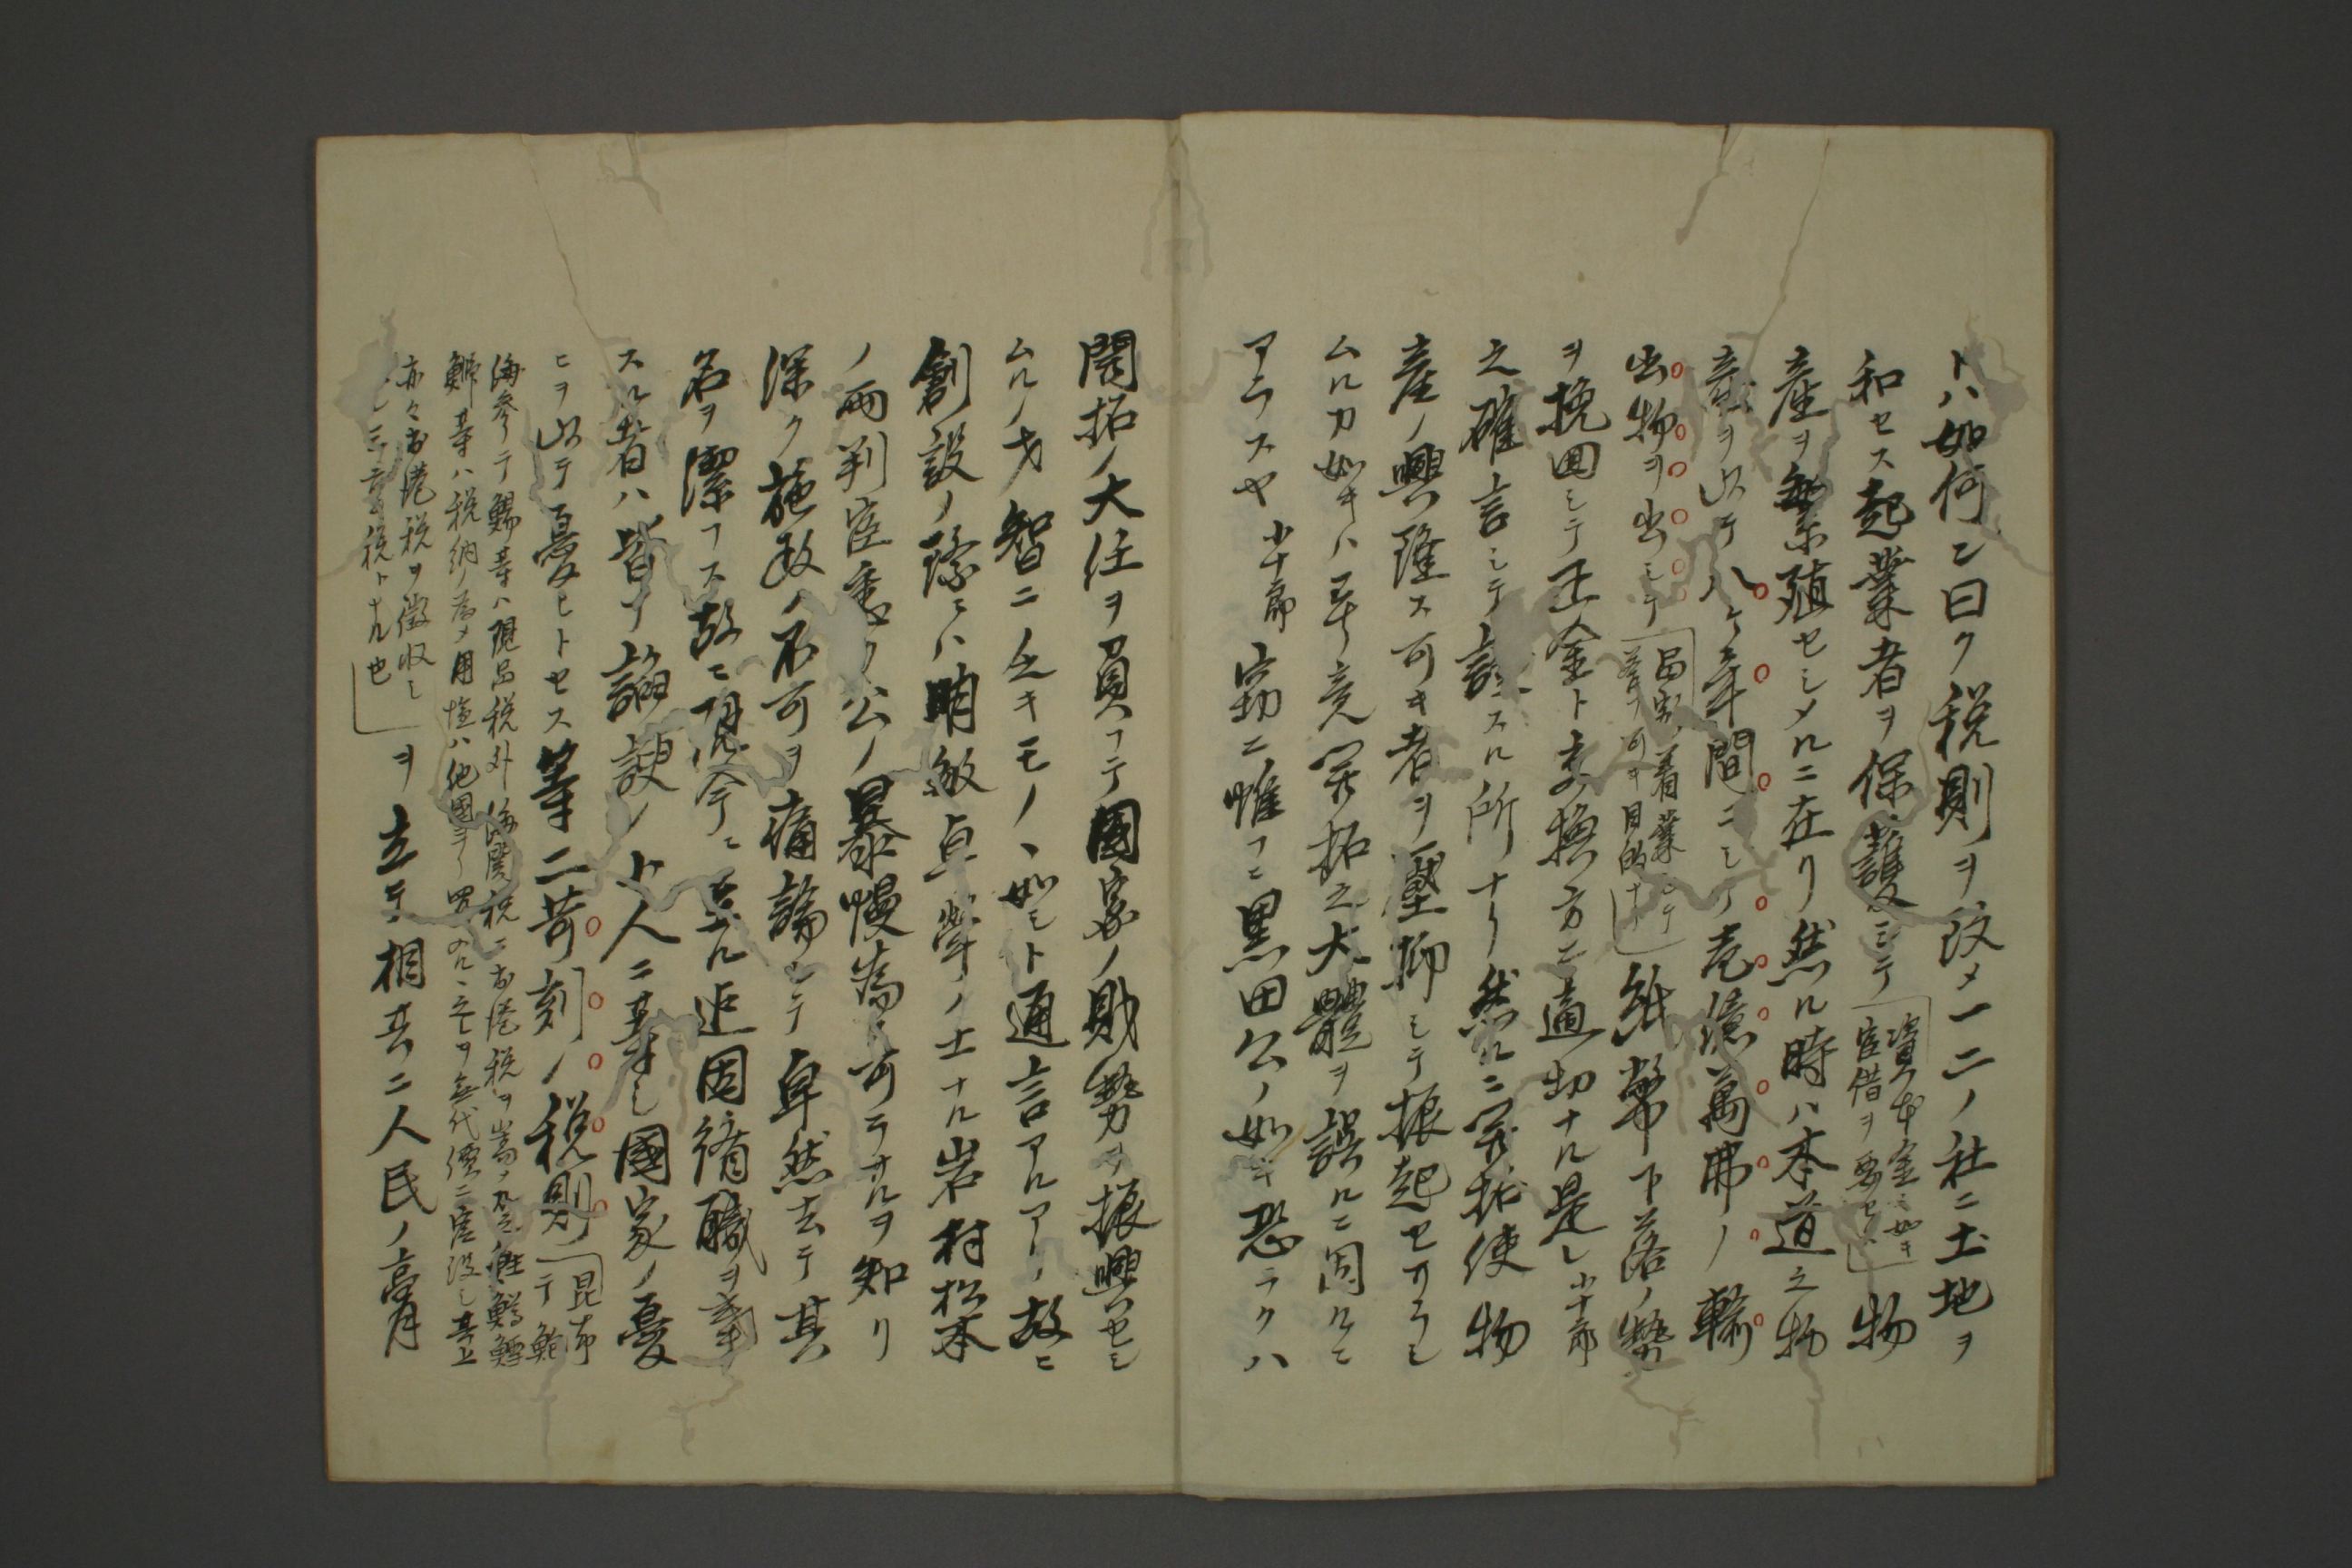 トハ如何ン曰ク税則ヲ改メ一二ノ社ニ土地ヲ
和セス起業者ヲ保護シテ
資本金ノ如キ
官借ヲ要セス
物
産ヲ繁殖セシメルニ在リ然ル時ハ本道之物
産ヲ以テ八ケ年間ニシテ壱億萬弗ノ輸
出物ヲ出シテ
着業シテ
挙ク可キ目的ナリ
紙幣下落ノ勢
ヲ挽回シテ正金ト交換方ニ適切ナル是レ小十郎
之確言シテ証スル所ナリ然ルニ開拓使物
産ノ興隆ス可キ者ヲ壓抑シテ振起セサラシ
ムルカ如キハ畢竟開拓之大體ヲ誤ルニ因ルニ
アラスヤ 小十郎 窃ニ惟フニ黒田公ノ如キ恐ラクハ
開拓ノ大任ヲ負フテ國家ノ財勢ヲ振興セシ
ムルノ才智ニ乏キモノヽ如シト通言アルアリ故ニ
創設ノ際ニハ明敏卓犖ノ士ナル岩村松本
ノ両判官悉ク公ノ暴慢為ス可ラサルヲ知リ
深ク施政ノ不可ヲ痛論シテ卓然去テ其
名ヲ潔フス故ニ現今ニ至ル迄因循職ヲ奉
スル者ハ皆ナ諂諛ノ小人ニ基シ國家ノ憂
ヒヲ以テ憂ヒトセス等ニ苛刻ノ税則
昆布
テ鮑
海参テ鯣等ハ現品税外海関税ニ出港税ヲ嵩メ鮭鱒鱈
鯡等ハ税納ノ為メ用塩ハ他國ヨリ買入ルヽ之ヲ無代價ニ官没シ其上
亦々出港税ヲ徴収シ
税トナル也
ヲ立テ相共ニ人民ノ膏